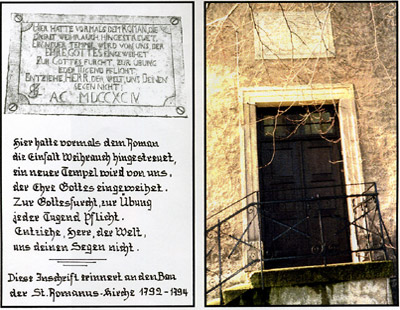 HIER HATTE VORMALS DEM ROMAN, DIE
EINFALT WEIHRAUCH HINGESTREUET,
EIN NEUER TEMPEL WIRD VON UNS, DER
EHRE GOTTES EINGEWEIHET.
ZUR GOTTES FURCHT, ZUR ÜBUNG
JEDER TUGEND PFLICHT.
ENTZIEHE HERR, DER WELT, UNS DEINEN
SEGEN NICHT!
MDCCXCIV
Hier hatte vormals dem Roman
die Einfalt Weihrauch hingestreuet,
ein neuer Tempel wird von uns,
der Ehre Gottes eingeweihet.
Zur Gottesfurcht, zur Übung
jeder Tugend Pflicht.
Entziehe, Herr, der Welt,
uns deinen Segen nicht.
Diese Inschrift erinnert an den Bau
der St. Romanus-Kirche 1792-1794